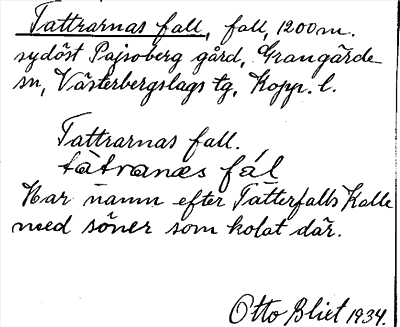 Tattrarnas fall, fall, 1200 m.
sydöst Pajsoberg gård, Grangärde
sn, Västerbergslags tg, Kopp. l.
Tattrarnas fall.
tàtranas fál
Har namn efter Tätterfalls Kalle
med söner som kolat där.
Otto Blixt 1934.